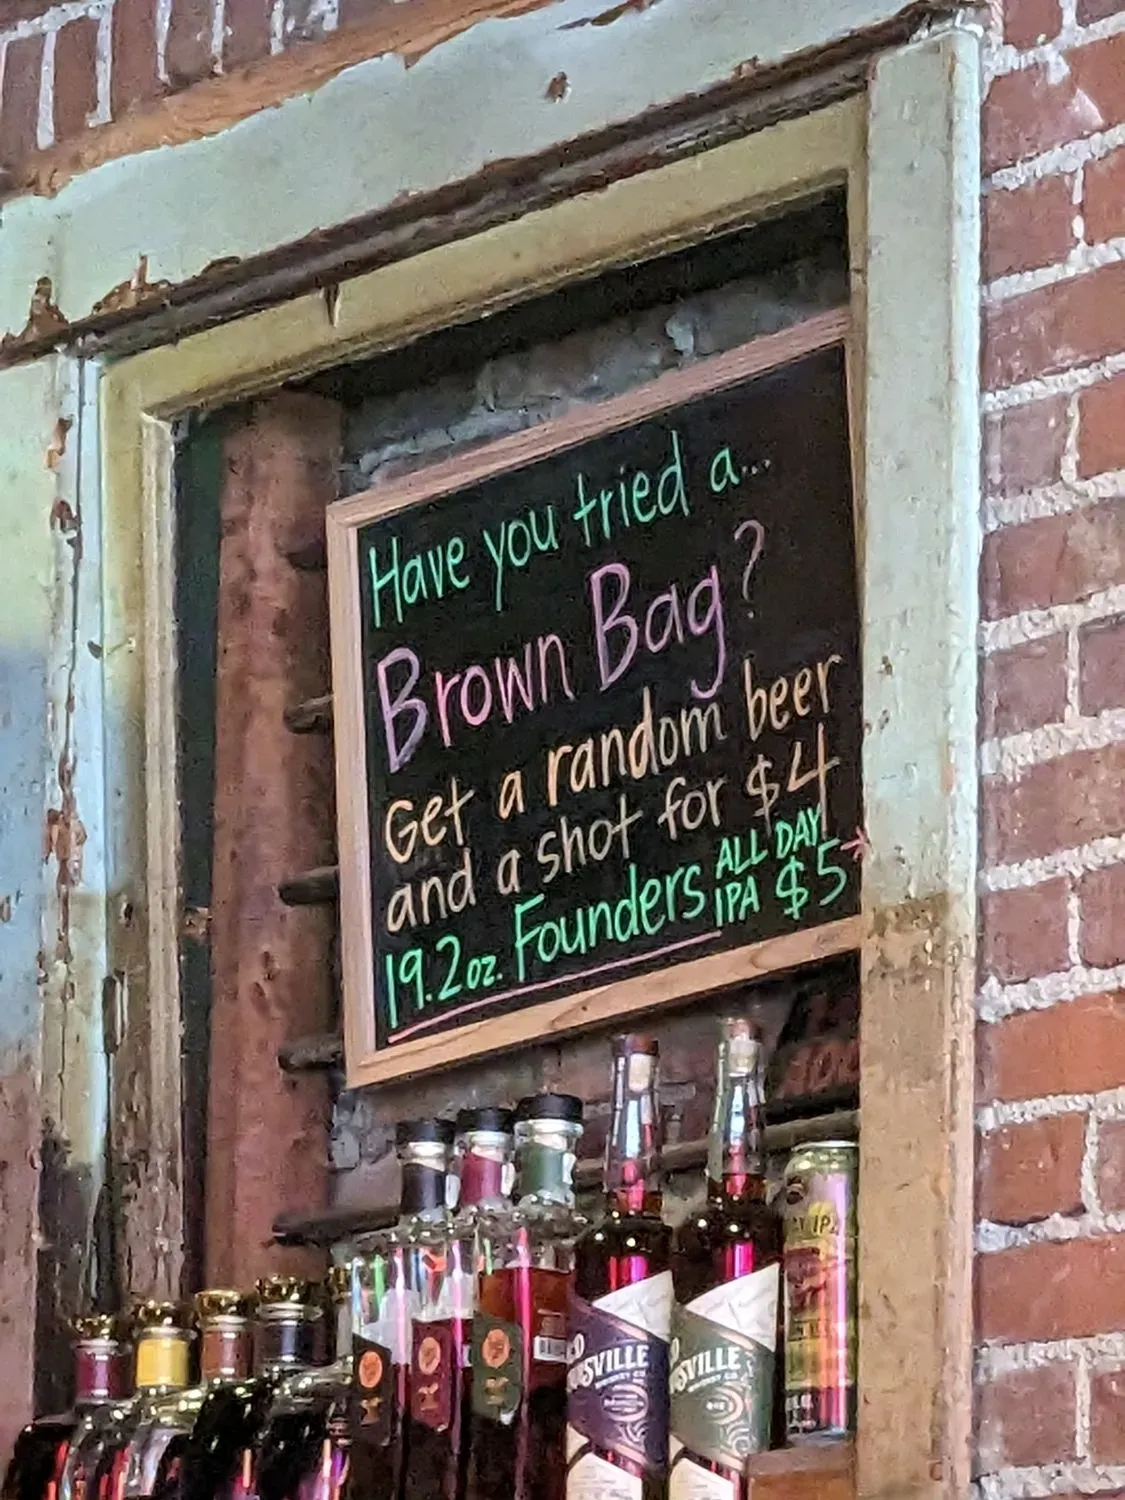 Have you tried a...
Brown Bag?
Get a random beer
and a shot for $4
19.2oz. Founders ALL DAY IPA $5
SVILLE
SVILLE
RYE
IPA